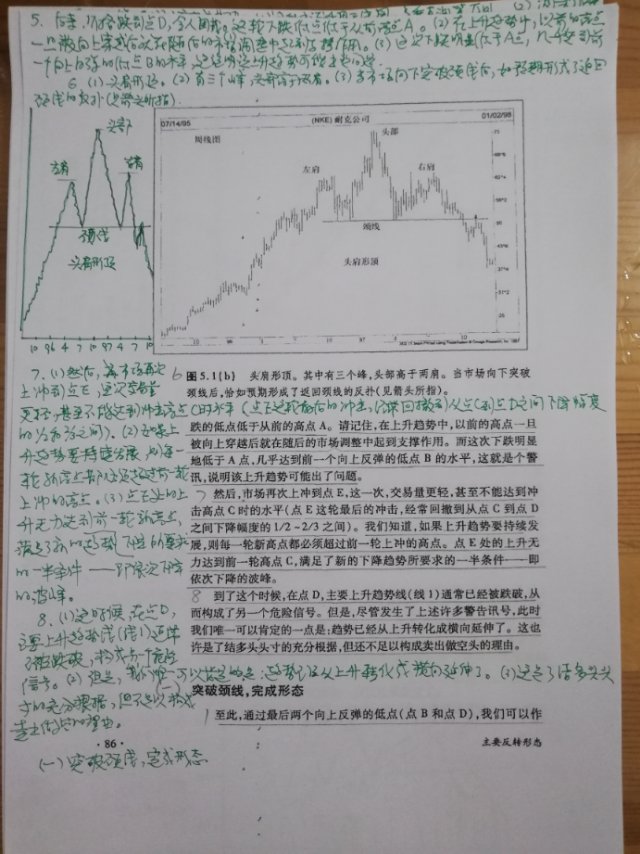 5. 后来,价格跌到点D,令人困扰,这轮下跌低点低于从前高点A。(2) 在上升趋势中,以前的高点
一旦被向上穿越后就在随后的市场调整中起到支撑作用。(3) 这次下跌明显低于A点,几乎达到前
一个向上反弹的低点B的水平,
6. (1) 头肩形顶。(2) 有三个峰,头部高于两肩。(3) 当市场向下突破颈线后,如预期形成了返回
颈线的反扑(见箭头所指)。
头部
左肩
右肩
颈线
头肩形顶
10 96 4 7 10 96 4 7 10
07/14/95 (NKE) 耐克公司 01/02/98
周线图
头部
左肩
右肩
颈线
头肩形顶
图5.1(b) 头肩形顶。其中有三个峰,头部高于两肩。当市场向下突破
颈线后,恰如预期形成了返回颈线的反扑(见箭头所指)。
7. (1) 然后,市场再次
上冲到点E,这次交易量
更轻,甚至不能达到冲击高点C时水平(点E这轮最后的冲击,经常回撤到从点C到点D之间下降幅度
的1/2到2/3之间)。(2) 如果上
升趋势要持续发展,则每一
轮新高点都必须超过前一轮
上冲的高点。(3) 点E处的上
升无力达到前一轮新高点,
满足了新的趋势下降的要求
的一半条件——即依次下降
的波峰。
跌的低点低于从前的高点A。请记住,在上升趋势中,以前的高点一旦
被向上穿越后就在随后的市场调整中起到支撑作用。而这次下跌明显
地低于A点,几乎达到前一个向上反弹的低点B的水平,这就是个警
讯,说明该上升趋势可能出了问题。
7 然后,市场再次上冲到点E,这一次,交易量更轻,甚至不能达到冲
击高点C时的水平(点E这轮最后的冲击,经常回撤到从点C到点D
之间下降幅度的1/2~2/3之间)。我们知道,如果上升趋势要持续发
展,则每一轮新高点都必须超过前一轮上冲的高点。点E处的上升无
力达到前一轮高点C,满足了新的下降趋势所要求的一半条件——即
依次下降的波峰。
8 到了这个时候,在点D,主要上升趋势线(线1)通常已经被跌破,从
而构成了另一个危险信号。但是,尽管发生了上述许多警告讯号,此时
我们唯一可以肯定的一点是:趋势已经从上升转化成横向延伸了。这也
许是了结多头头寸的充分根据,但还不足以构成卖出做空头的理由。
8. (1) 这时候,在点D,
主要上升趋势线(线1)通常
已被跌破,构成另一个危险
信号。(2) 但是,我们唯一可以肯定的是:趋势已经从上升转化成横向延伸了。(3) 这是了结多头头
寸的充分根据,但不足以构成
卖出做空的理由。
(一) 突破颈线,完成形态
1 至此,通过最后两个向上反弹的低点(点B和点D),我们可以作
·86· 主要反转形态
(一) 突破颈线,完成形态